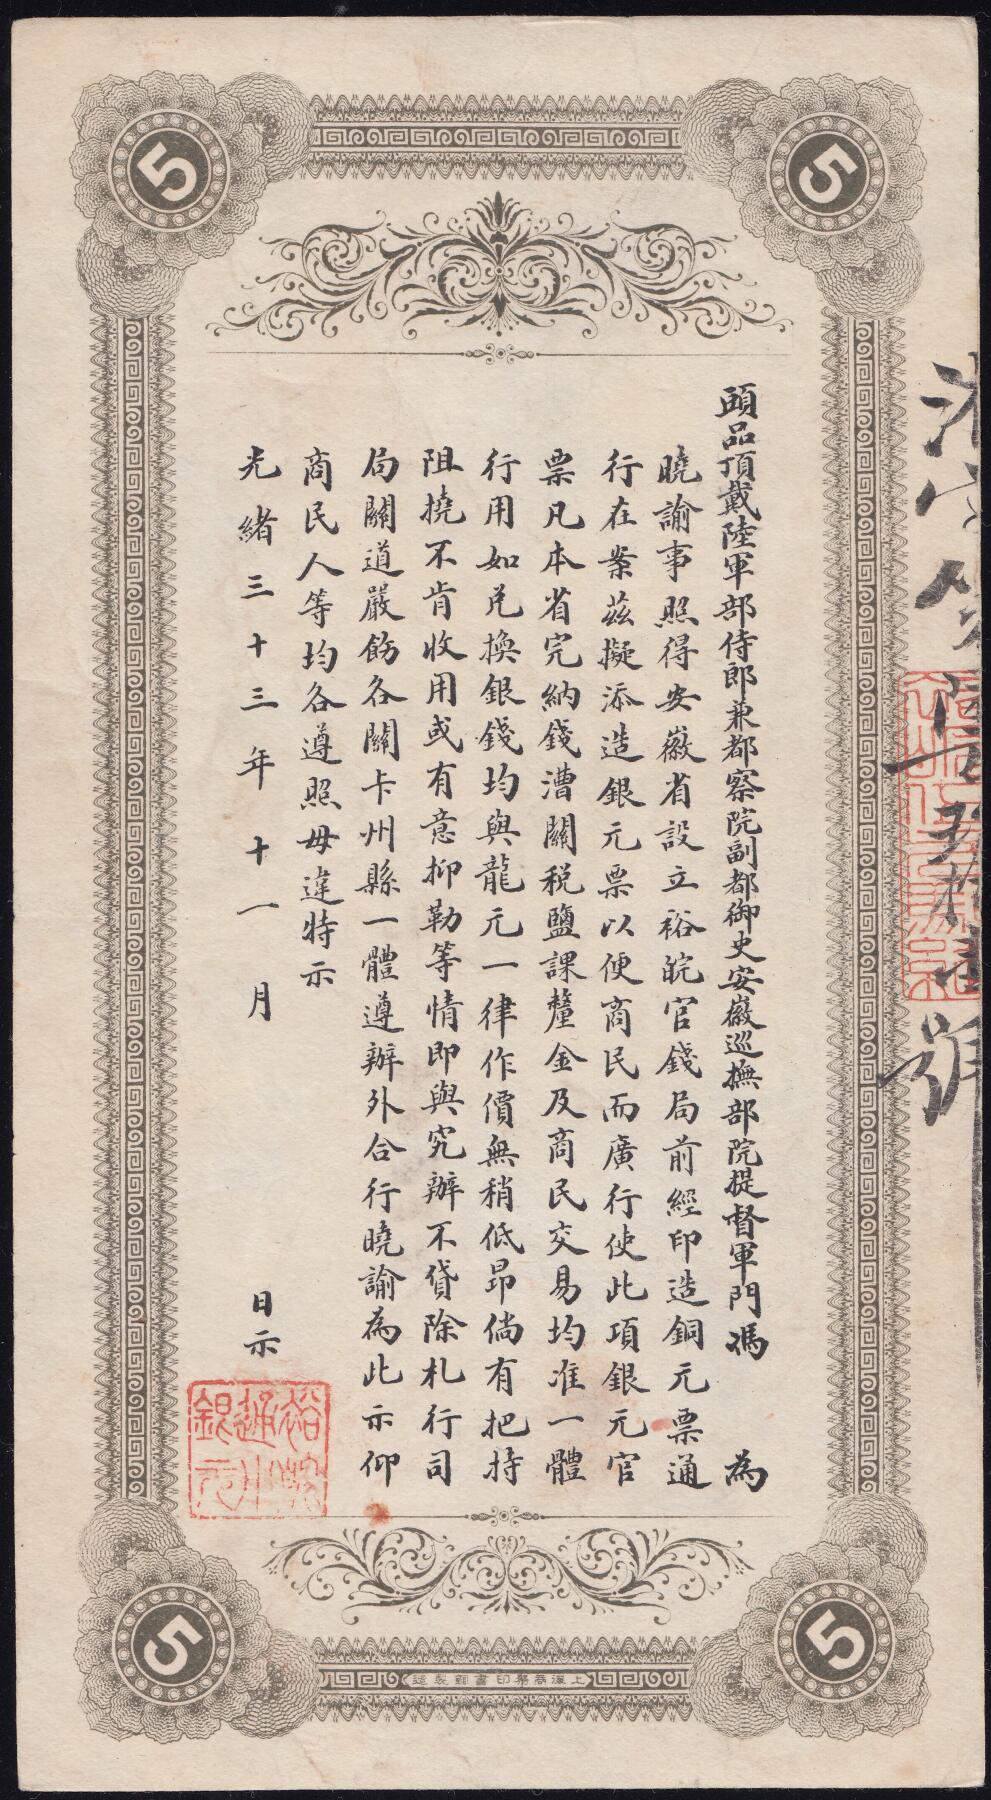 5
5
頭品頂戴陸軍部侍郎兼都察院副都御史安徽巡撫部院提督軍門馮 為
曉諭事照得安徽省設立裕皖官錢局前經印造銅元票通
行在案茲擬添造銀元票以便商民而廣行使此項銀元官
票凡本省完納錢漕關稅鹽課釐金及商民交易均准一體
行用如兌換銀錢均與龍元一律作價無稍低昂倘有把持
阻撓不肯收用或有意抑勒等情即與究辦不貸除札行司
局關道嚴飭各關卡州縣一體遵辦外合行曉諭為此示仰
商民人等均各遵照毋違特示
光緒三十三年十一月 日示
裕皖
通用
銀元
5
5
上海商務印書館製造
號